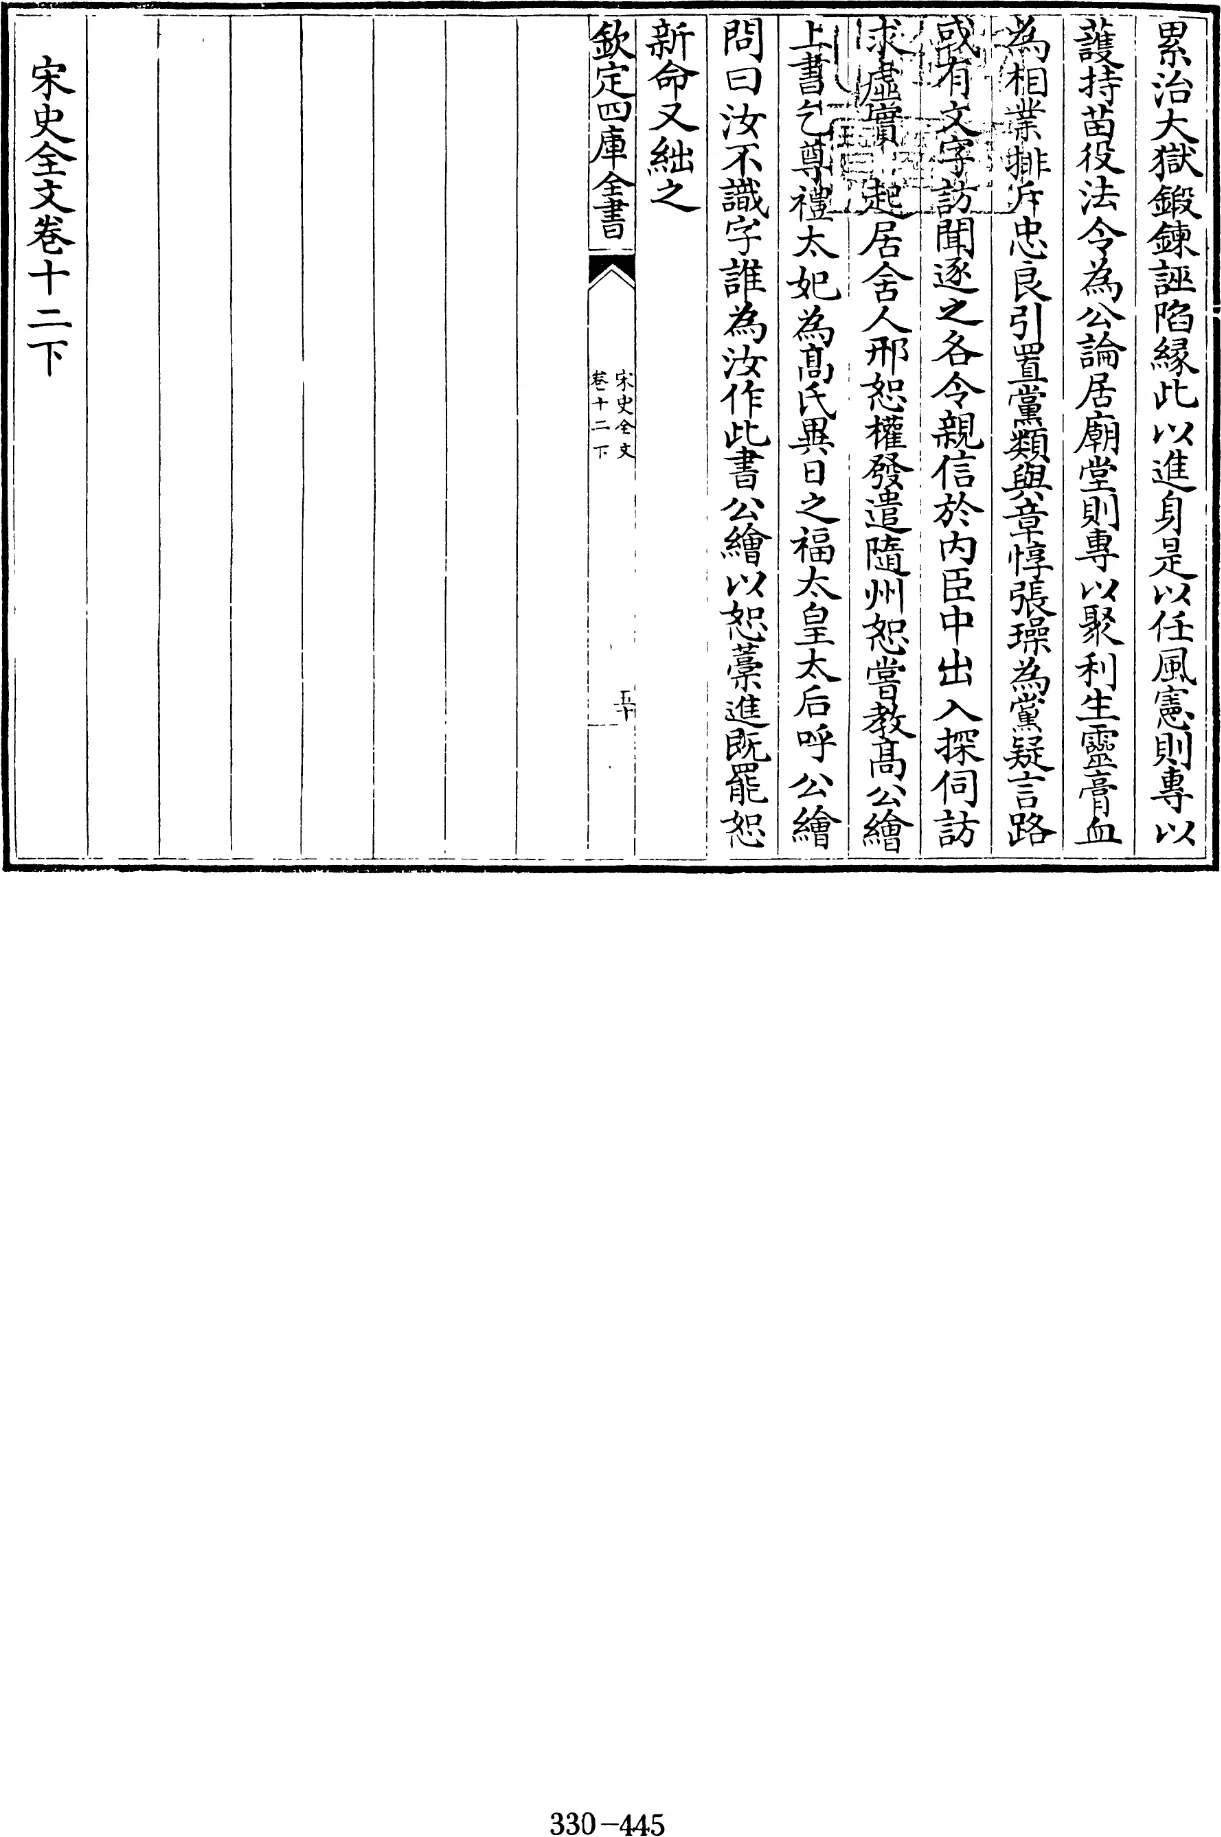 累治大獄鍛鍊誣陷緣此以進身是以任風憲則專以
護持苗役法令為公論居廟堂則專以聚利生靈膏血
為相業排斥忠良引置黨類與章惇張璪為黨疑言路
或有文字訪聞逐之各令親信於内臣中出入探伺訪
求虛實　起居舍人邢恕權發遣隨州恕嘗教髙公繪
上書乞尊禮太妃為髙氏異日之福太皇太后呼公繪
問曰汝不識字誰為汝作此書公繪以恕藁進既罷恕
新命又絀之
欽定四庫全書
宋史全文
卷十二下
五十
宋史全文卷十二下
330-445